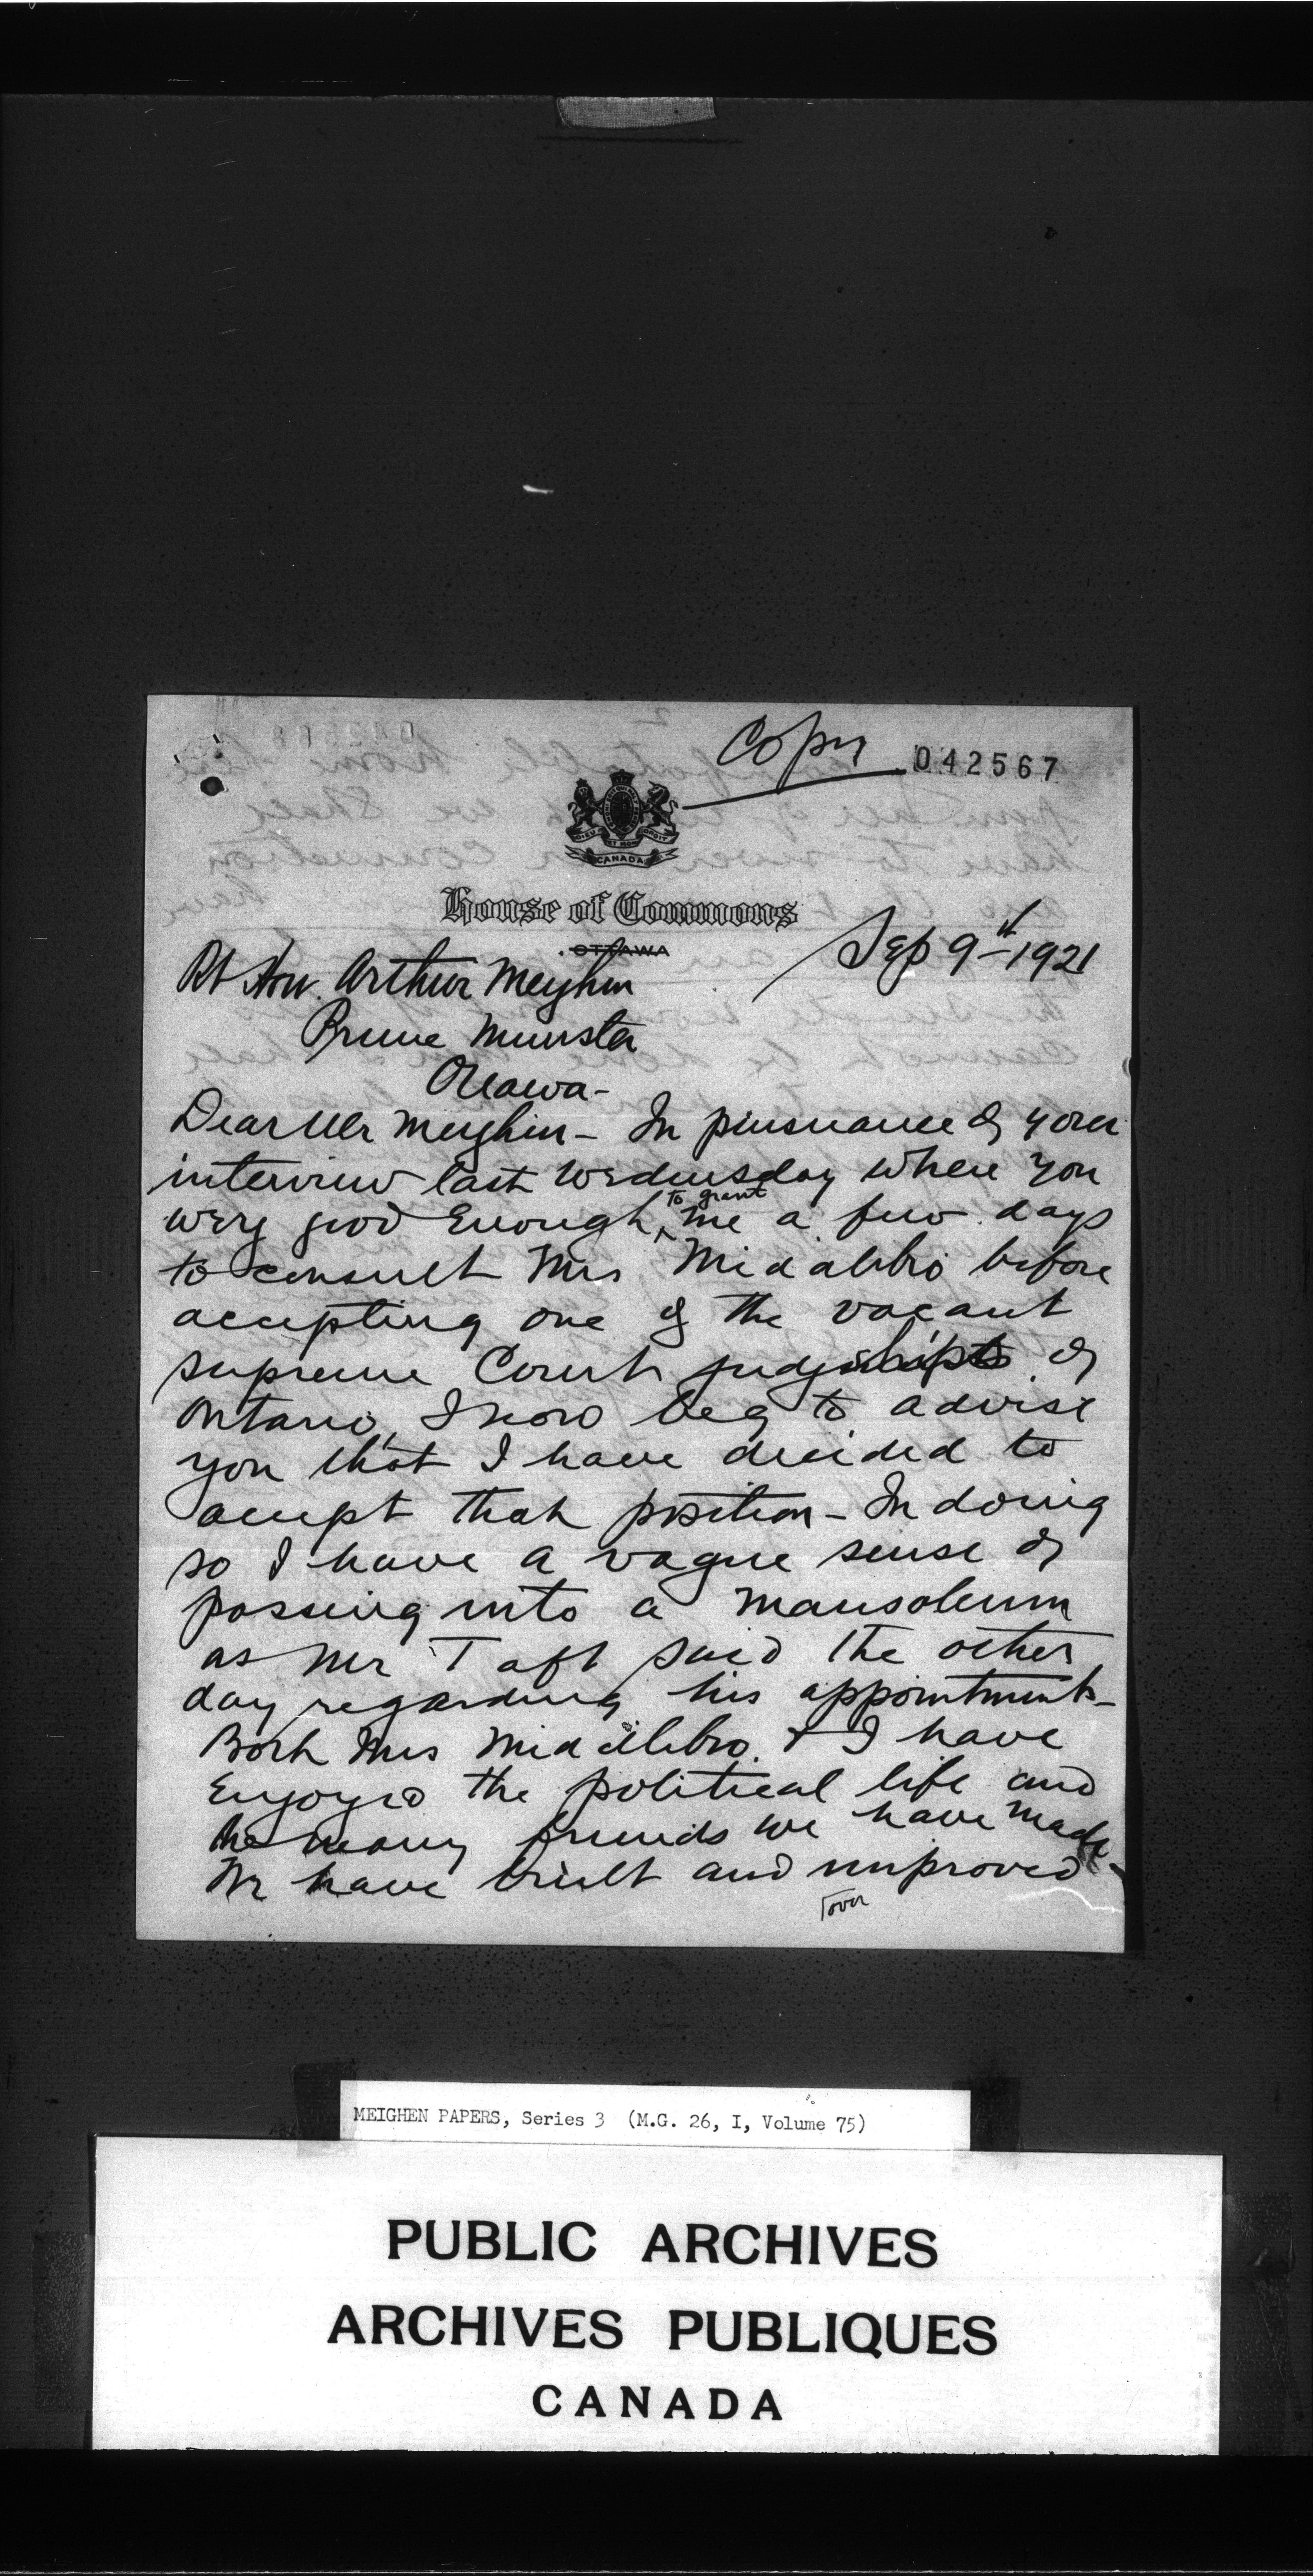 Copy
042567
DIEU ET MON DROIT
CANADA
House of Commons
OTTAWA
Sep 9th 1921
Rt Hon. Arthur Meighen
Prime Minister
Ottawa -
Dear Mr Meighen - In pursuance of your
interview last Wednesday where you
were good enough to grant me a few days
to consult Mrs Middlebro before
accepting one of the vacant
Supreme Court judgeships of
Ontario, I now beg to advise
you that I have decided to
accept that position - In doing
so I have a vague sense of
passing into a mausoleum
as Mr Taft said the other
day regarding his appointment -
Both Mrs Middlebro & I have
enjoyed the political life and
the many friends we have made -
We have built and improved
over
MEIGHEN PAPERS, Series 3 (M.G. 26, I, Volume 75)
PUBLIC ARCHIVES
ARCHIVES PUBLIQUES
CANADA